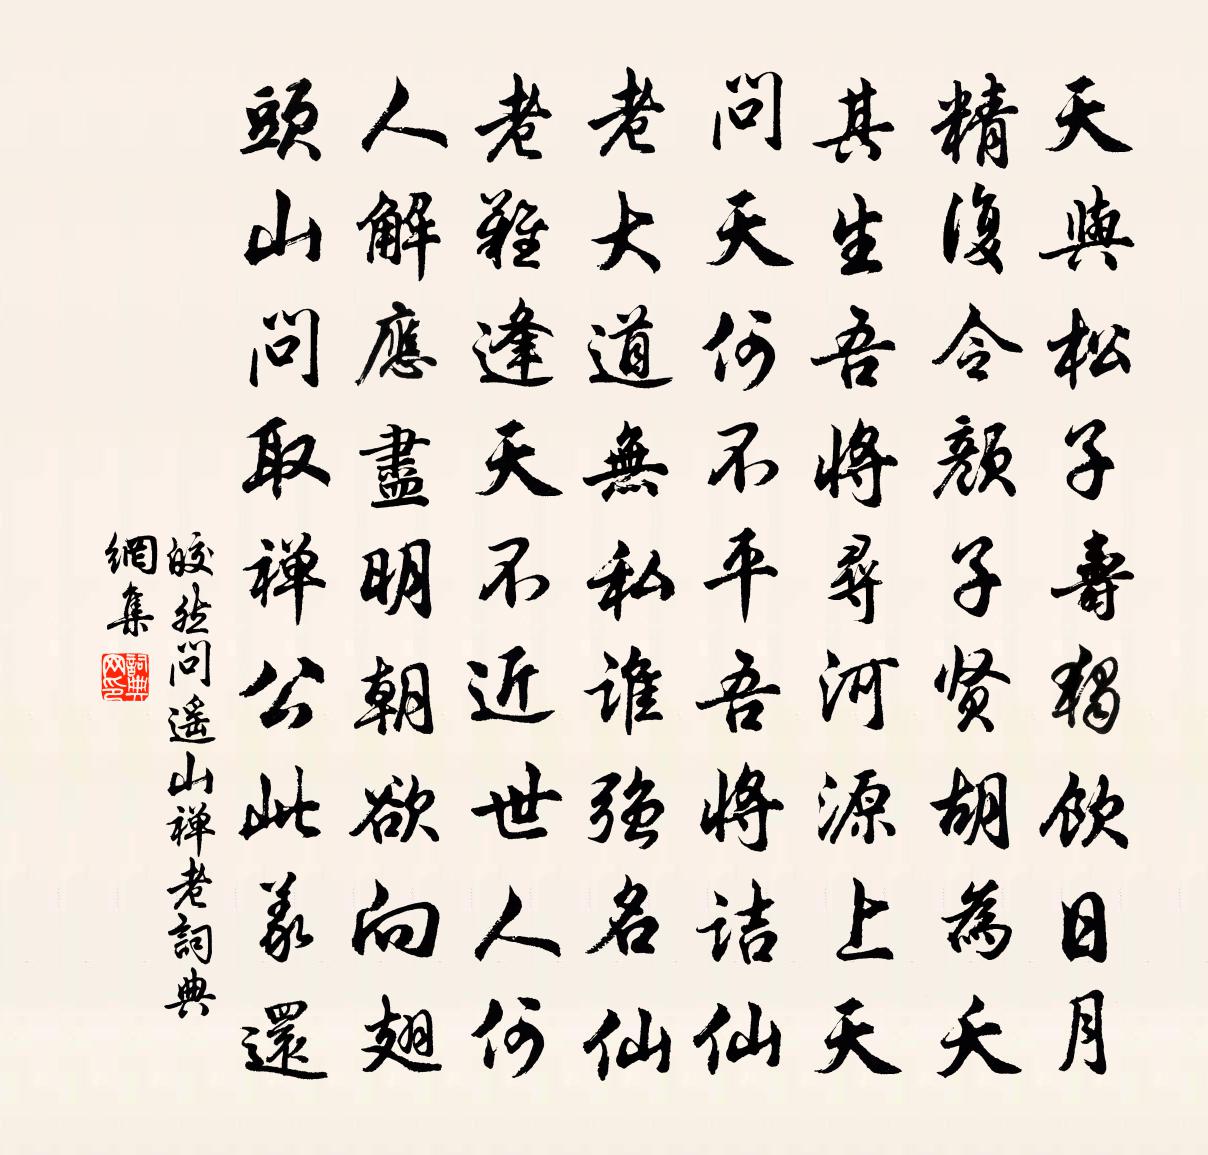 天與松子壽獨飲日月
精復令顏子賢胡為夭
其生吾將尋河源上天
問天何不平吾將詰仙
老大道無私誰強名仙
老難逢天不近世人何
人解應盡明朝欲向翅
頭山問取禅公此義還
皎然問遥山禅老詞典
網集
詞典網印